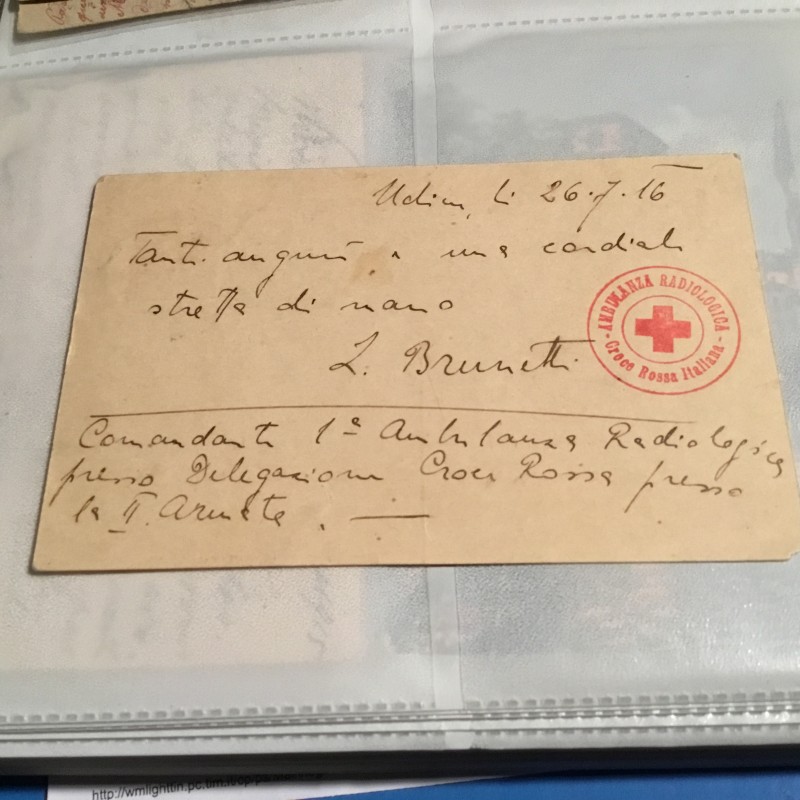 Udine, li 26.7.16
Tanti auguri e una cordiale
stretta di mano
L. Brunetti
AMBULANZA RADIOLOGICA
Croce Rossa Italiana
Comandante 1ª Ambulanza Radiologica
presso Delegazione Croce Rossa presso
la II. Armata.